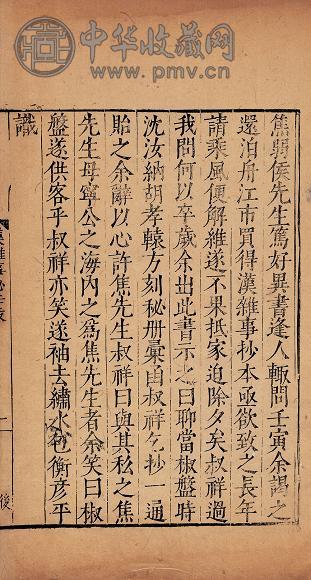 中华收藏网
www.pmv.cn
焦弱侯先生篤好異書逢人輙問壬寅余謁之
還泊舟江市買得漢雜事抄本亟欲致之長年
請乘風便解維遂不果抵家迫除夕矣叔祥過
我問何以卒歲余出此書示之曰聊當椒盤時
沈汝納胡孝轅方刻秘册彙函叔祥乞抄一通
貽之余辭以心許焦先生叔祥曰與其私之焦
先生毋寧公之海内之為焦先生者余笑曰椒
盤遂供客乎叔祥亦笑遂袖去繡水包衡彦平
識
漢雜事秘辛
二
後